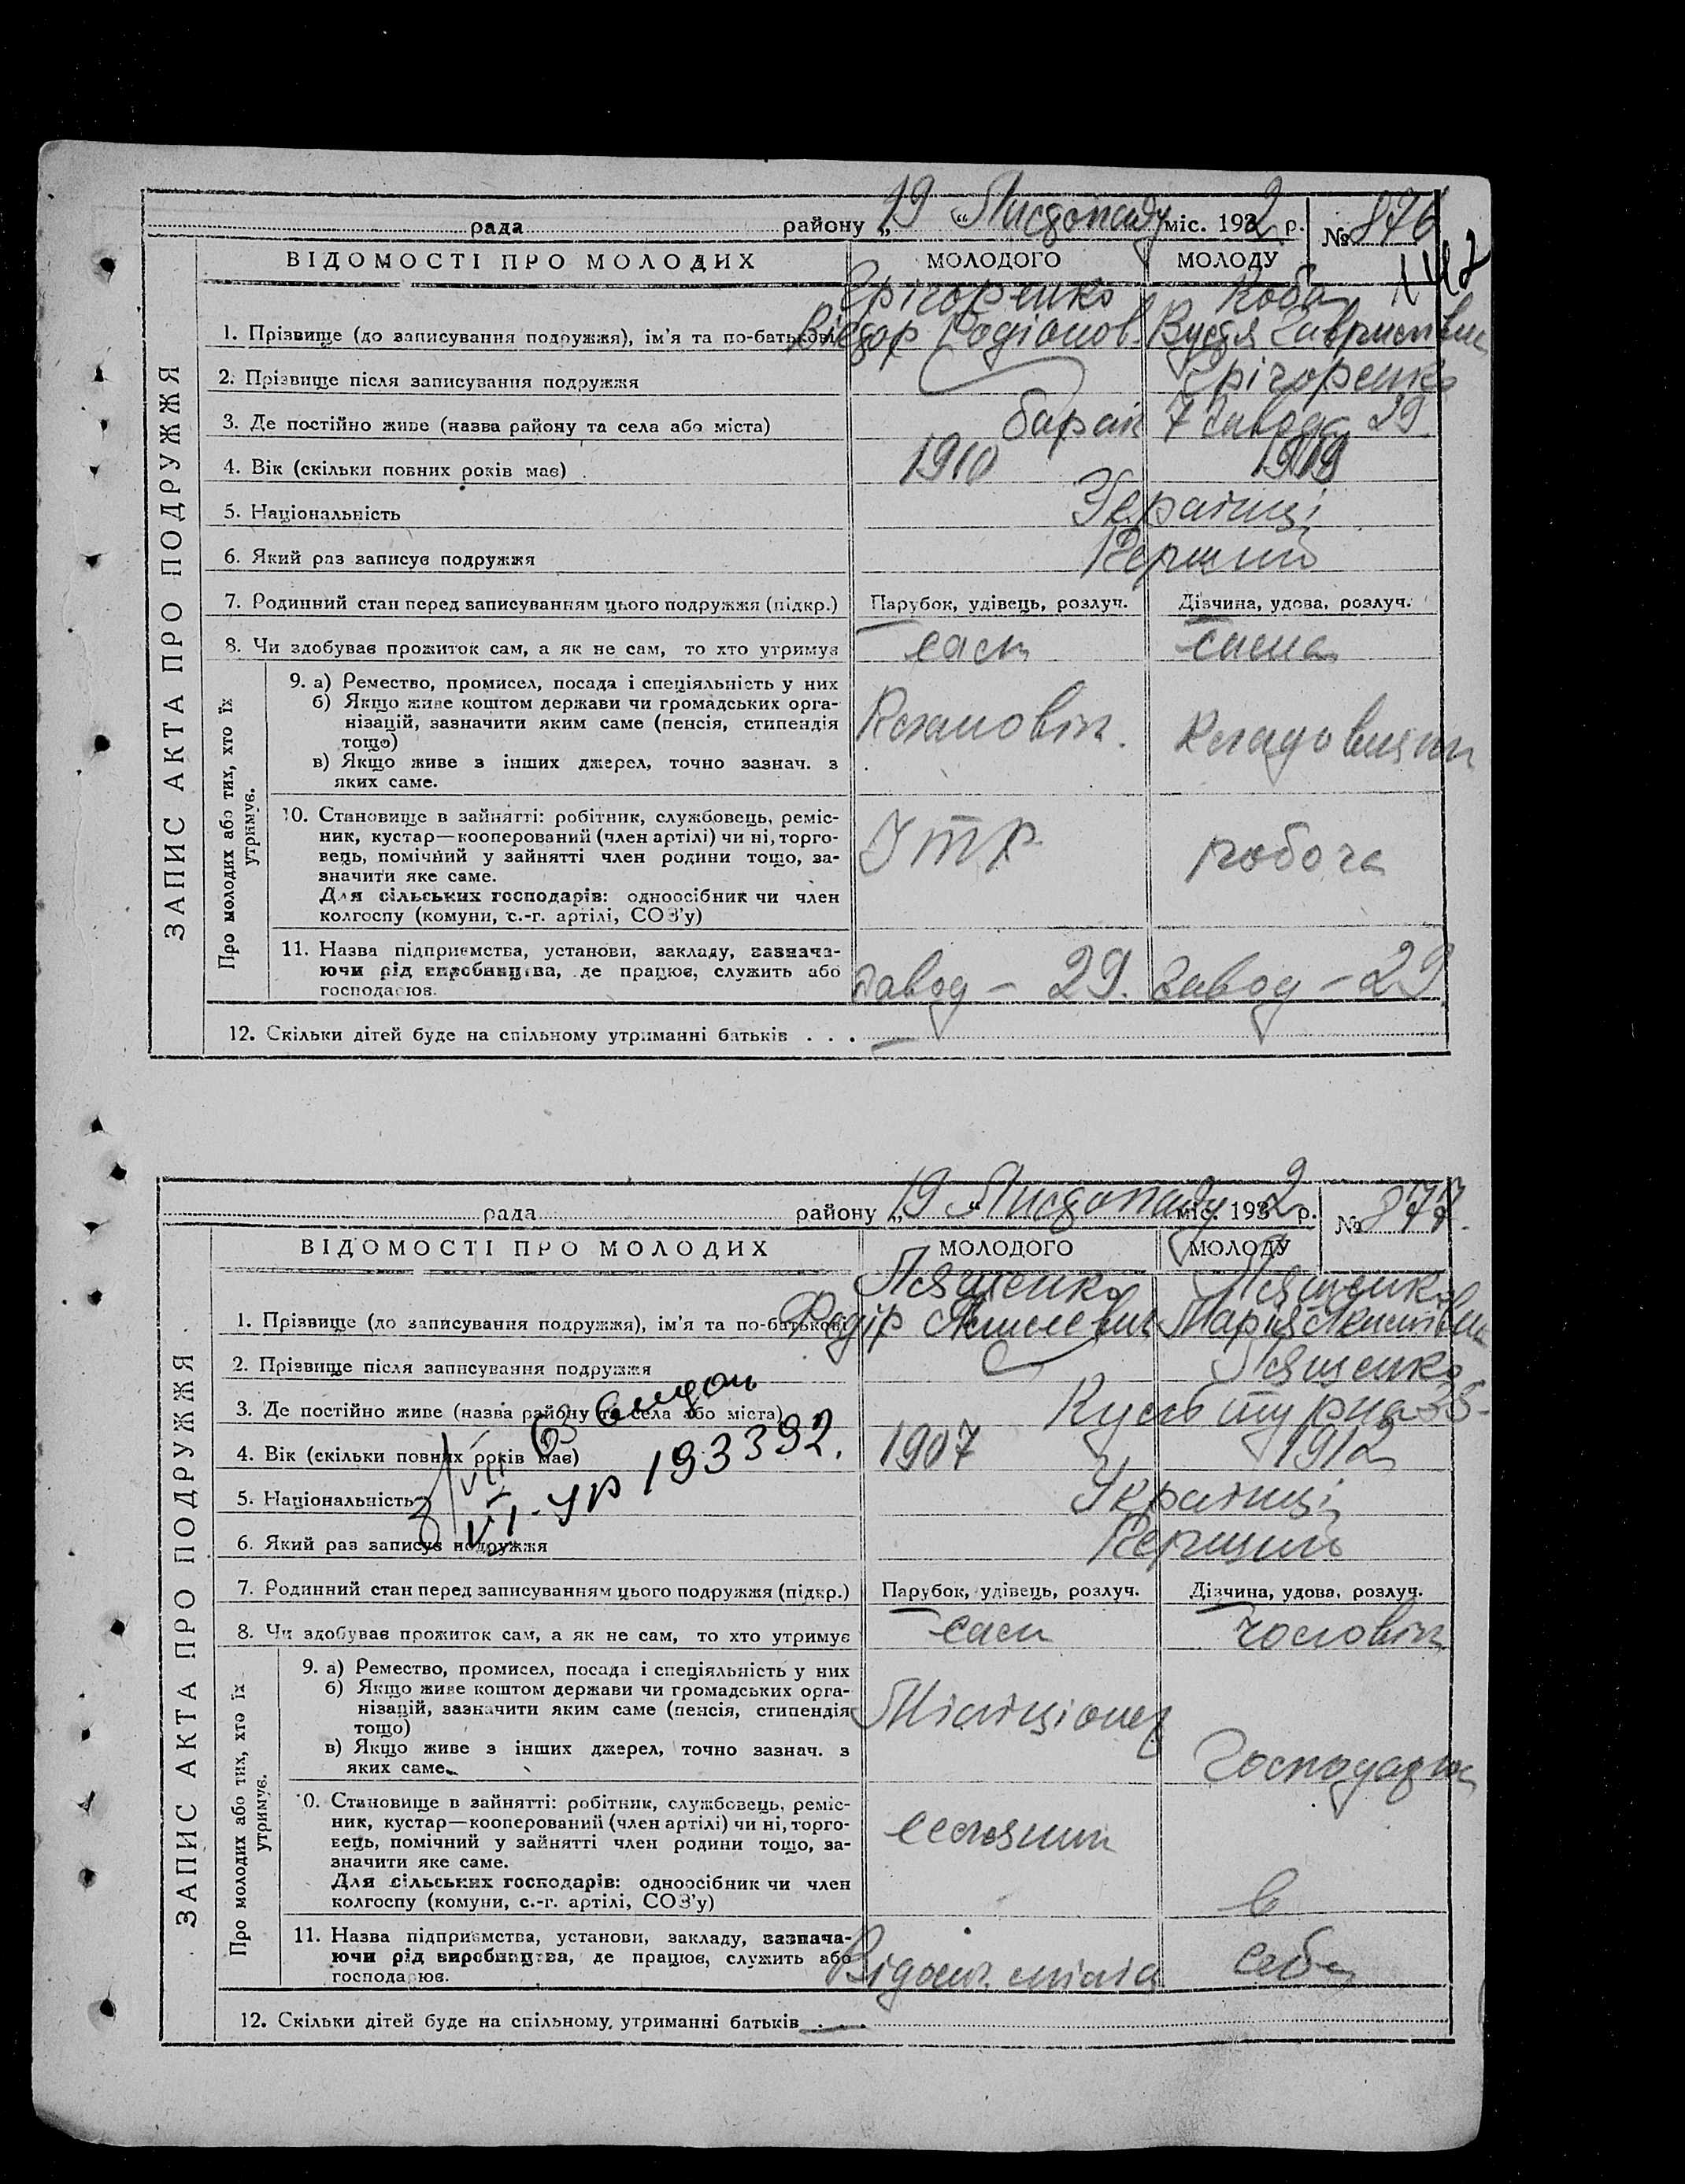 рада району „19 “ Листопаду міс. 1932 р. № 876
ВІДОМОСТІ ПРО МОЛОДИХ МОЛОДОГО МОЛОДУ
Грігоренко Коба
1. Прізвище (до записування подружжя), ім'я та по-батькові Віктор Родіонов.
2. Прізвище після записування подружжя Грігоренко
3. Де постійно живе (назва району та села або міста) барак 7 завода 29
4. Вік (скільки повних років має) 1910
5. Національність Українці
6. Який раз записує подружжя Перший
7. Родинний стан перед записуванням цього подружжя (підкр.) Парубок, удівець, розлуч. Дівчина, удова, розлуч.
8. Чи здобуває прожиток сам, а як не сам, то хто утримує сам сама
ЗАПИС АКТА ПРО ПОДРУЖЖЯ
Про молодих або тих, хто їх утримує.
9. а) Ремество, промисел, посада і спеціяльність у них
б) Якщо живе коштом держави чи громадських орга-
нізацій, зазначити яким саме (пенсія, стипендія
тощо)
в) Якщо живе з інших джерел, точно зазнач. з
яких саме.
Плановік. Кладовщик
10. Становище в зайнятті: робітник, службовець, реміс-
ник, кустар—кооперований (член артілі) чи ні, торго-
вець, помічний у зайнятті член родини тощо, за-
значити яке саме.
Для сільських господарів: одноосібник чи член
колгоспу (комуни, с.-г. артілі, СОЗ'у)
ІТР робоча
11. Назва підприємства, установи, закладу, зазнача-
ючи рід виробництва, де працює, служить або
господарює.
завод – 29. завод – 29
12. Скільки дітей буде на спільному утриманні батьків . . . —
рада району „19 “ Листопаду міс. 1932 р. № 877.
ВІДОМОСТІ ПРО МОЛОДИХ МОЛОДОГО МОЛОДУ
1. Прізвище (до записування подружжя), ім'я та по-батькові Федір Марія
2. Прізвище після записування подружжя
3. Де постійно живе (назва району та села або міста) Культурна 35
4. Вік (скільки повних років має) 1907 1912
VI-УР 193392.
5. Національність Українці
6. Який раз записує подружжя Перший
7. Родинний стан перед записуванням цього подружжя (підкр.) Парубок, удівець, розлуч. Дівчина, удова, розлуч.
8. Чи здобуває прожиток сам, а як не сам, то хто утримує сам чоловік
ЗАПИС АКТА ПРО ПОДРУЖЖЯ
Про молодих або тих, хто їх утримує.
9. а) Ремество, промисел, посада і спеціяльність у них
б) Якщо живе коштом держави чи громадських орга-
нізацій, зазначити яким саме (пенсія, стипендія
тощо)
в) Якщо живе з інших джерел, точно зазнач. з
яких саме.
Міліціонер Господарює
10. Становище в зайнятті: робітник, службовець, реміс-
ник, кустар—кооперований (член артілі) чи ні, торго-
вець, помічний у зайнятті член родини тощо, за-
значити яке саме.
Для сільських господарів: одноосібник чи член
колгоспу (комуни, с.-г. артілі, СОЗ'у)
в
11. Назва підприємства, установи, закладу, зазнача-
ючи рід виробництва, де працює, служить або
господарює.
себе
12. Скільки дітей буде на спільному утриманні батьків . . . —